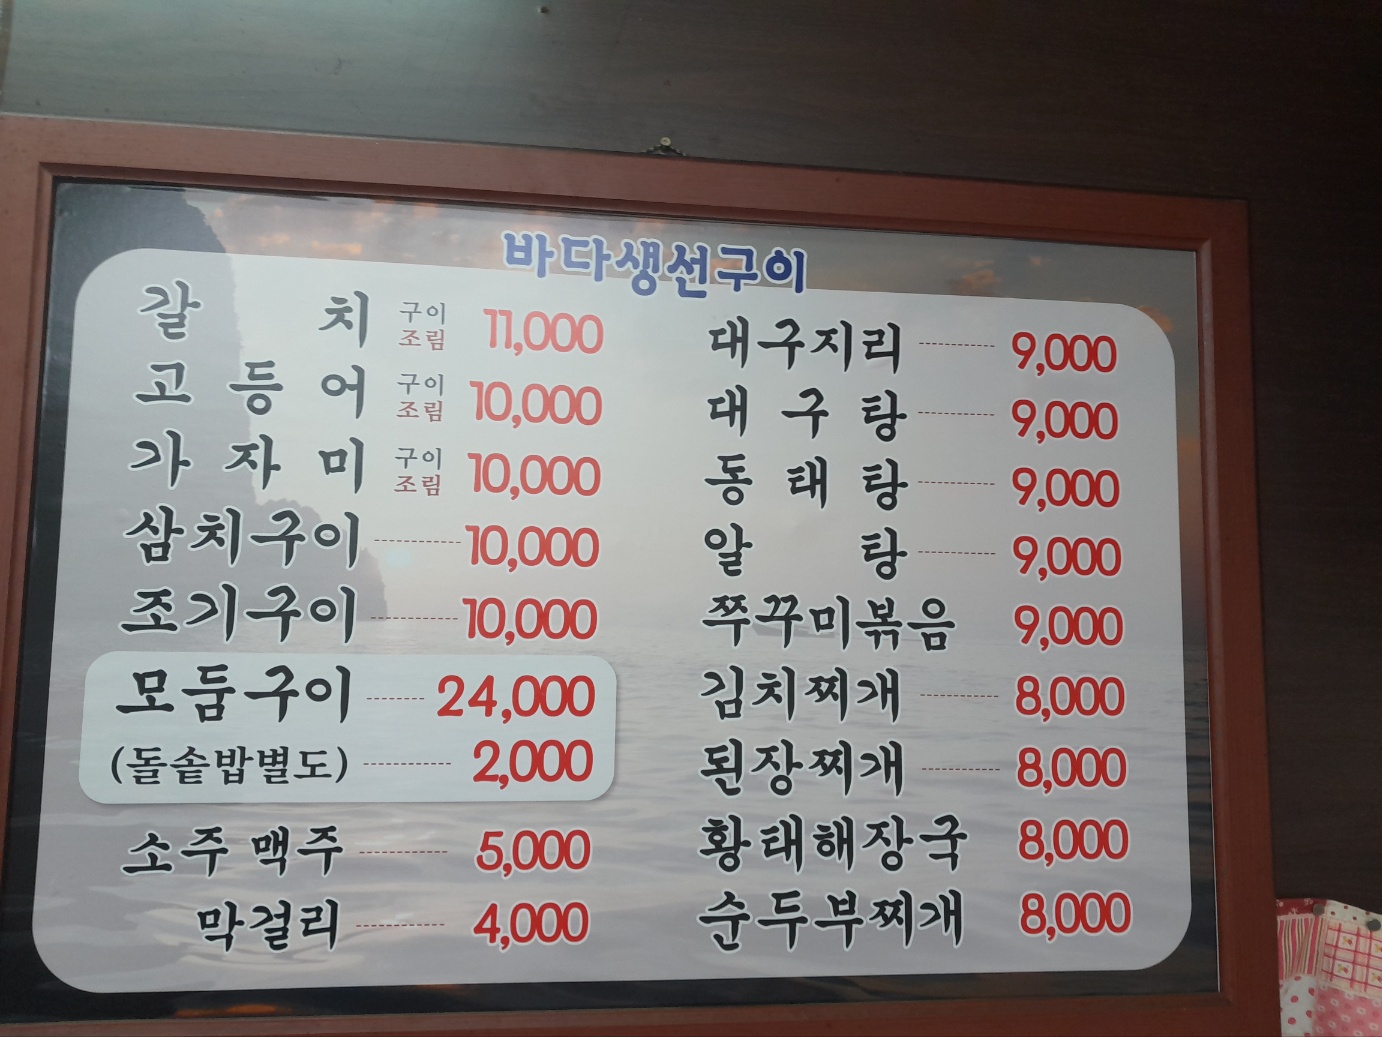 바다생선구이
갈치 구이 조림 11,000
고등어 구이 조림 10,000
가자미 구이 조림 10,000
삼치구이 10,000
조기구이 10,000
모둠구이 24,000
(돌솥밥별도) 2,000
소주 맥주 5,000
막걸리 4,000
대구지리 9,000
대구탕 9,000
동태탕 9,000
알탕 9,000
쭈꾸미볶음 9,000
김치찌개 8,000
된장찌개 8,000
황태해장국 8,000
순두부찌개 8,000